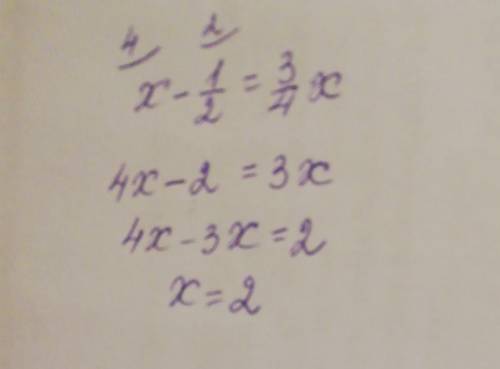 4 2
x - 1/2 = 3/4 x
4x - 2 = 3x
4x - 3x = 2
x = 2